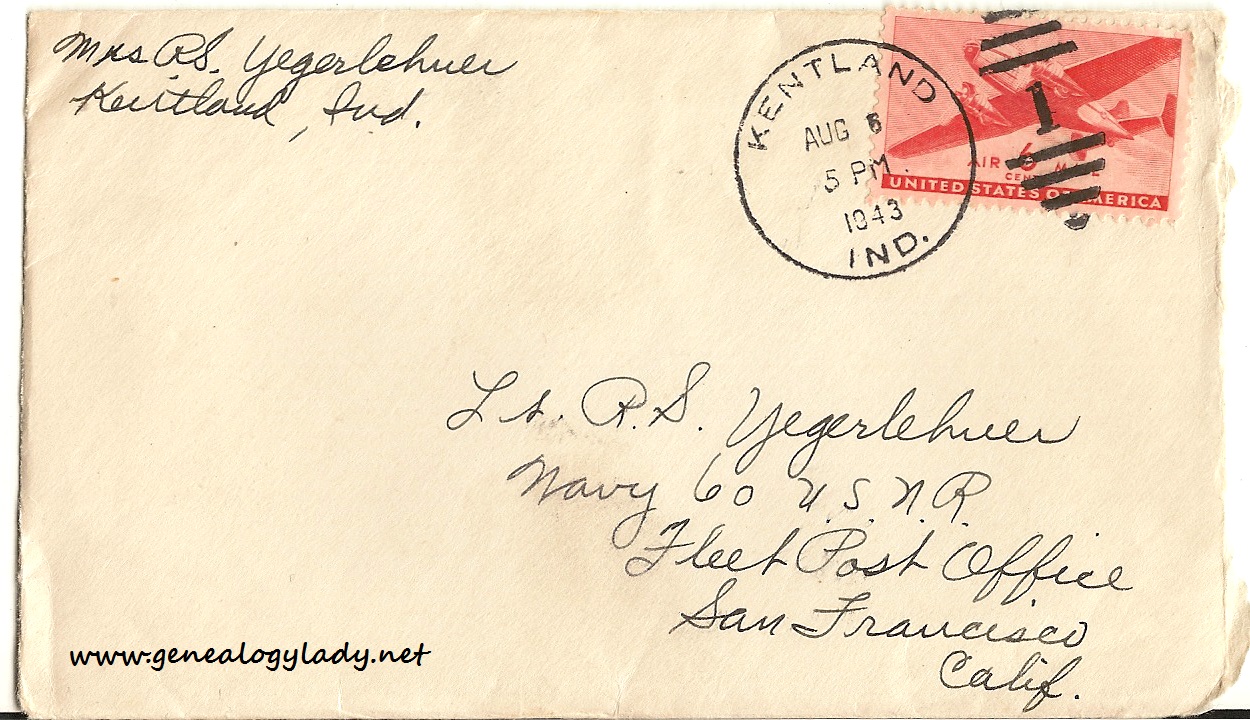 Mrs R.S. Yegerlehner
Kentland, Ind.
KENTLAND
AUG 6
5 PM
1943
IND.
1
AIR 6 MAIL
CENTS
UNITED STATES OF AMERICA
Lt. R.S. Yegerlehner
Navy 60 U.S.N.R.
Fleet Post Office
San Francisco
Calif.
www.genealogylady.net